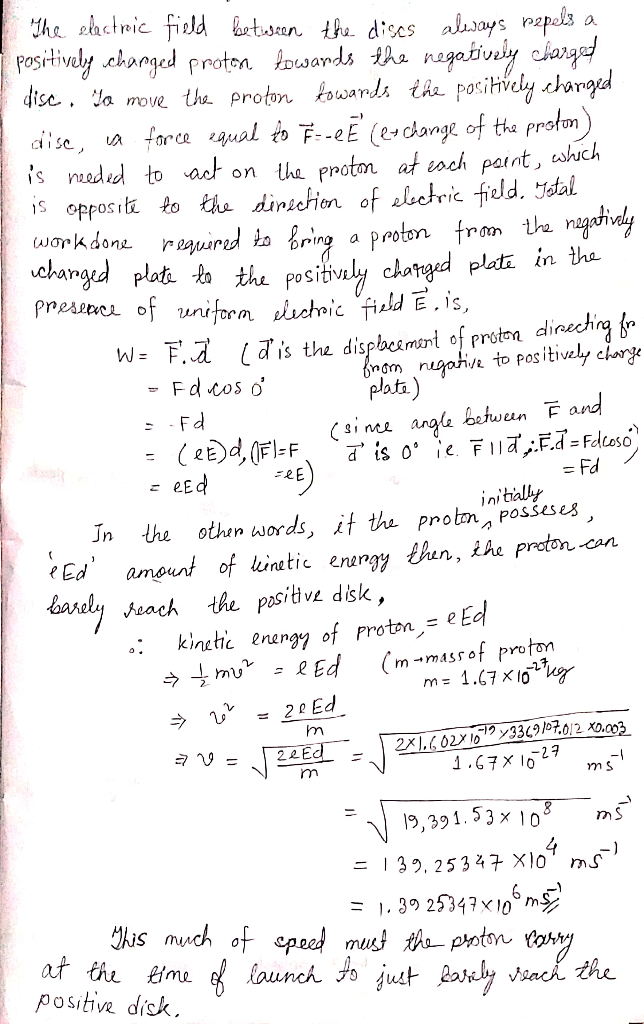 The electric field between the discs always repels a
positively changed proton towards the negatively charged
disc. To move the proton towards the positively changed
disc, a force equal to F⃗=-eE⃗ (e→change of the proton)
is needed to act on the proton at each point, which
is opposite to the direction of electric field. Total
workdone required to bring a proton from the negatively
changed plate to the positively charged plate in the
presence of uniform electric field E⃗. is,
W = F⃗.d⃗ (d⃗ is the displacement of proton directing fr
from negative to positively charge
= Fd cos 0° plate)
= Fd (since angle between F⃗ and
= (eE)d, (|F⃗|=F d⃗ is 0° ie. F⃗ || d⃗, ∴ F⃗.d⃗ = Fdcos0°)
= eEd =eE) = Fd
In the other words, if the proton initially posseses,
'eEd' amount of kinetic energy then, the proton can
barely reach the positive disk,
∴ kinetic energy of proton, = eEd
⇒ 1/2 mv² = eEd (m→mass of proton
m = 1.67×10⁻²⁷kg
⇒ v² = 2eEd/m
⇒ v = √(2eEd/m) = √(2×1.602×10⁻¹⁹×3369107.012×0.003/1.67×10⁻²⁷) ms⁻¹
= √(19,391.53×10⁸) ms⁻¹
= 139.25347×10⁴ ms⁻¹
= 1.3925347×10⁶ ms⁻¹
This much of speed must the proton carry
at the time of launch to just barely reach the
positive disk.